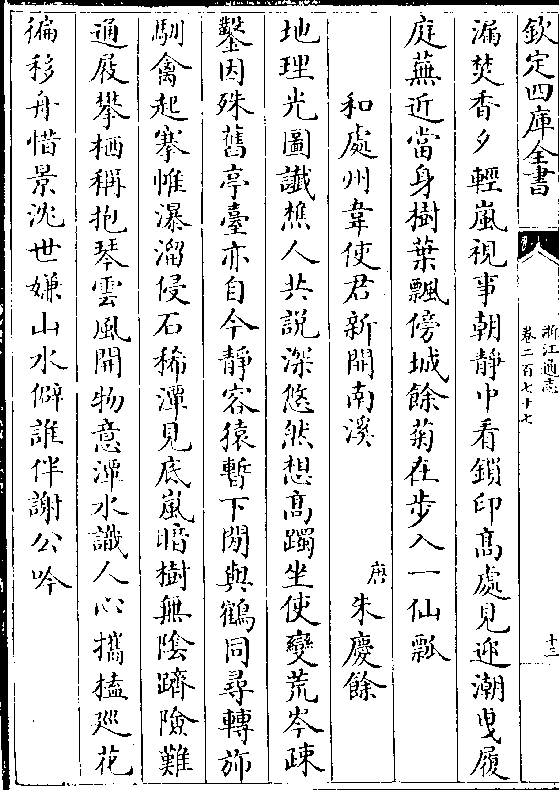 欽定四庫全書
浙江通志
卷二百七十七
十三
漏焚香夕輕嵐視事朝靜中看鎖印高處見迎潮曳履
庭蕪近當身樹葉飄傍城餘菊在步入一仙瓢
和處州韋使君新開南溪
唐
朱慶餘
地理光圖讖樵人共説深悠然想高躅坐使變荒岑疎
鑿因殊舊亭臺亦自今靜容猿暫下閒與鶴同尋轉斾
馴禽起搴帷瀑溜侵石稀潭見底嵐暗樹無陰躋險難
通屐攀栖稱抱琴雲風開物意潭水識人心攜榼廵花
徧移舟惜景沈世嫌山水僻誰伴謝公吟